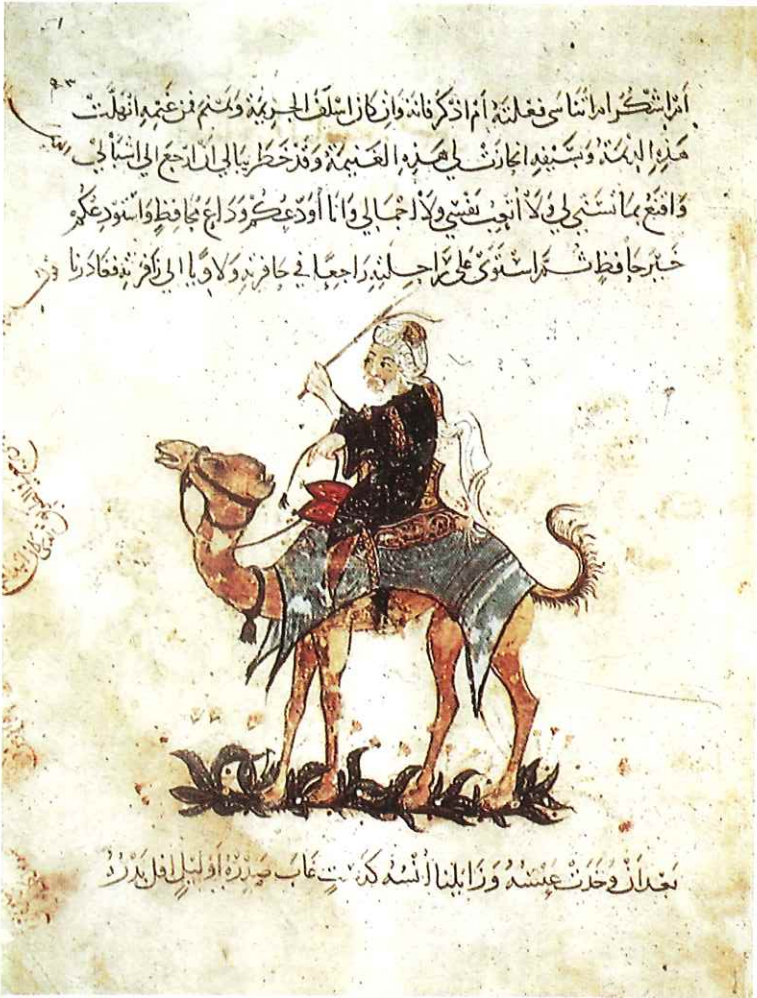 أم أشكر أم أتناسى فعلته أم أذكر فإنه وإن كان أسلف الجريمة ونمنم فمن غيمه انهلت
هذه الديمة وبسيفه انحازت لي هذه الغنيمة وقد خطر ببالي أن أرجع إلى أشبالي
وأقنع بما تسنى لي ولا أتعب نفسي ولا أجمالي وأنا أودعكم وداع محافظ وأستودعكم
خير حافظ ثم استوى على راحلته راجعا في حافرته ولاويا إلى زافرته فغادرنا
بعد أن وخدت عنسه وزايلنا أنسه كدست غاب صدره أو ليل أفل بدره